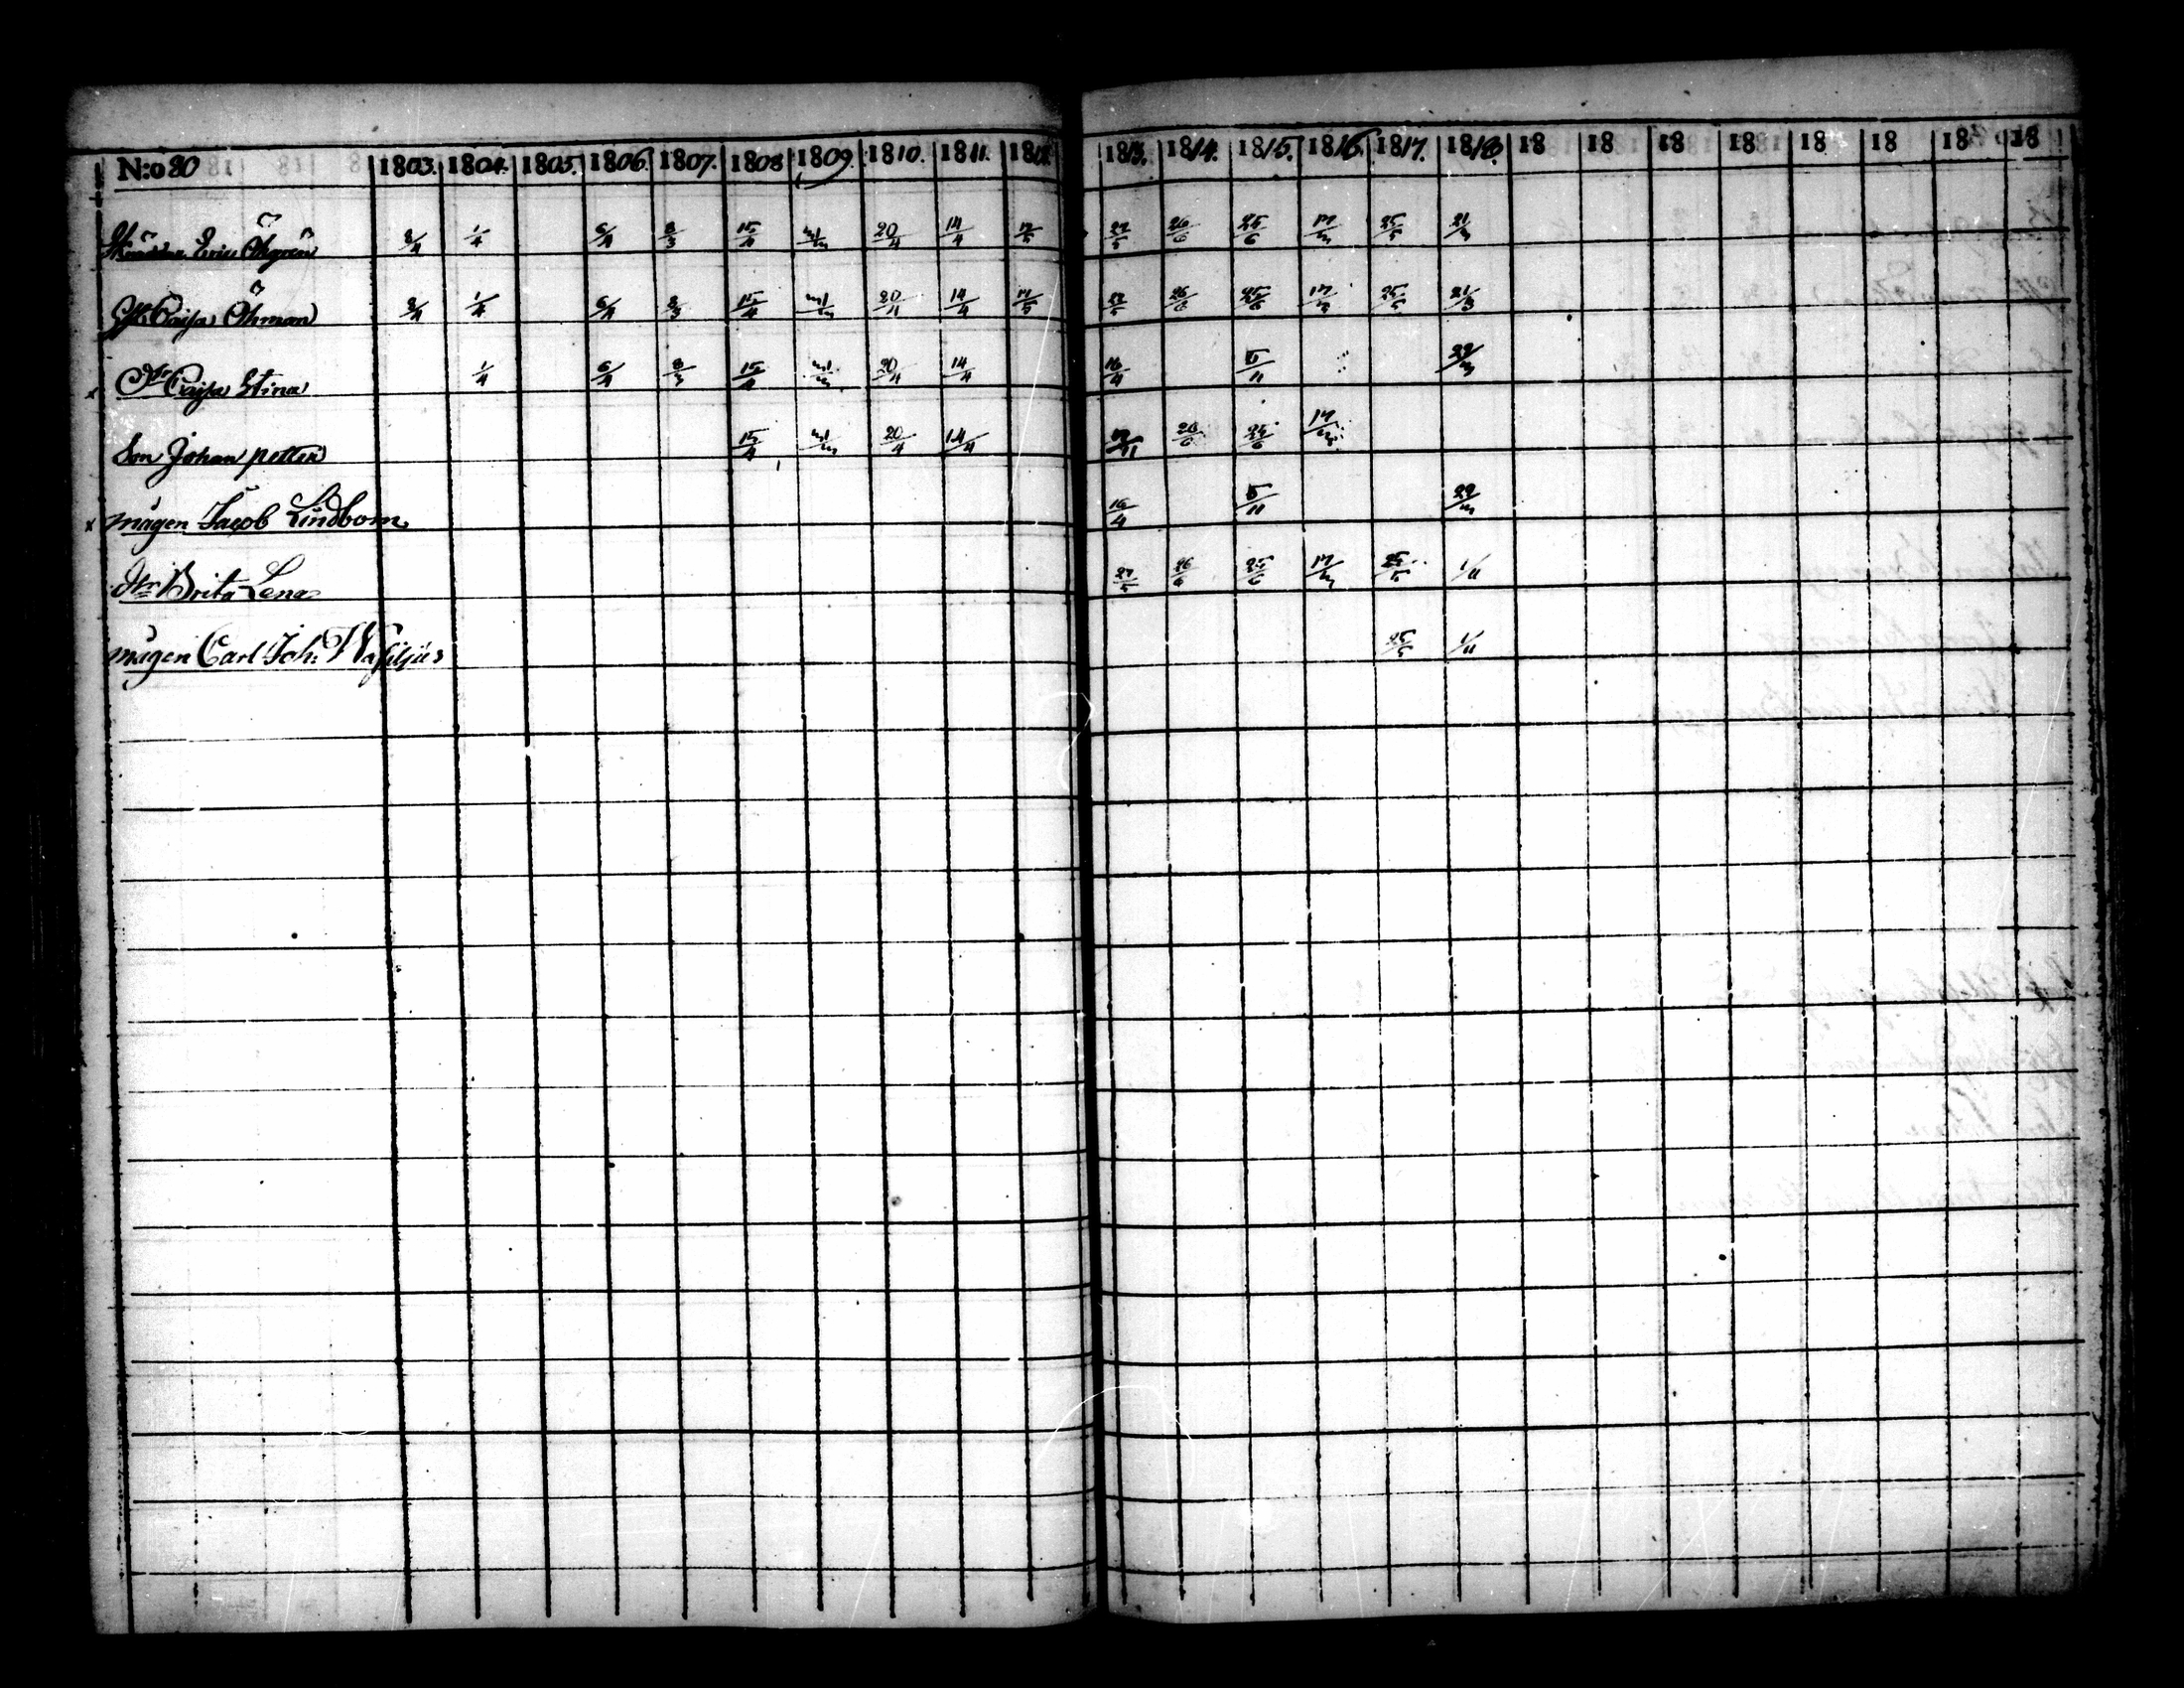 N:o 20 1803. 1804. 1805. 1806. 1807. 1808 1809. 1810. 1811. 1812. 1813. 1814. 1815. 1816. 1817. 1818. 18 18 18 18 18 18 18 18
Eric Öhgren 1/4 6/4 8/3 15/4 20/4 14/4 17/5 27/5 26/6 25/6 17/3 25/5 21/3
Caisa Öhman 1/4 6/4 8/3 15/4 20/4 14/4 17/5 27/5 26/6 25/6 17/3 25/5 21/3
x Dtr Caisa Stina 1/4 6/4 8/3 15/4 20/4 14/4 16/4 5/11 29/3
Son Johan petter 15/4 20/4 14/4 26/6 25/6 17/3
x mågen Jacob Lindbom 16/4 5/11 29/3
dtr Brita Lena 27/5 26/6 25/6 17/3 25/5 1/11
mågen Carl Joh: Wasilius 25/5 1/11